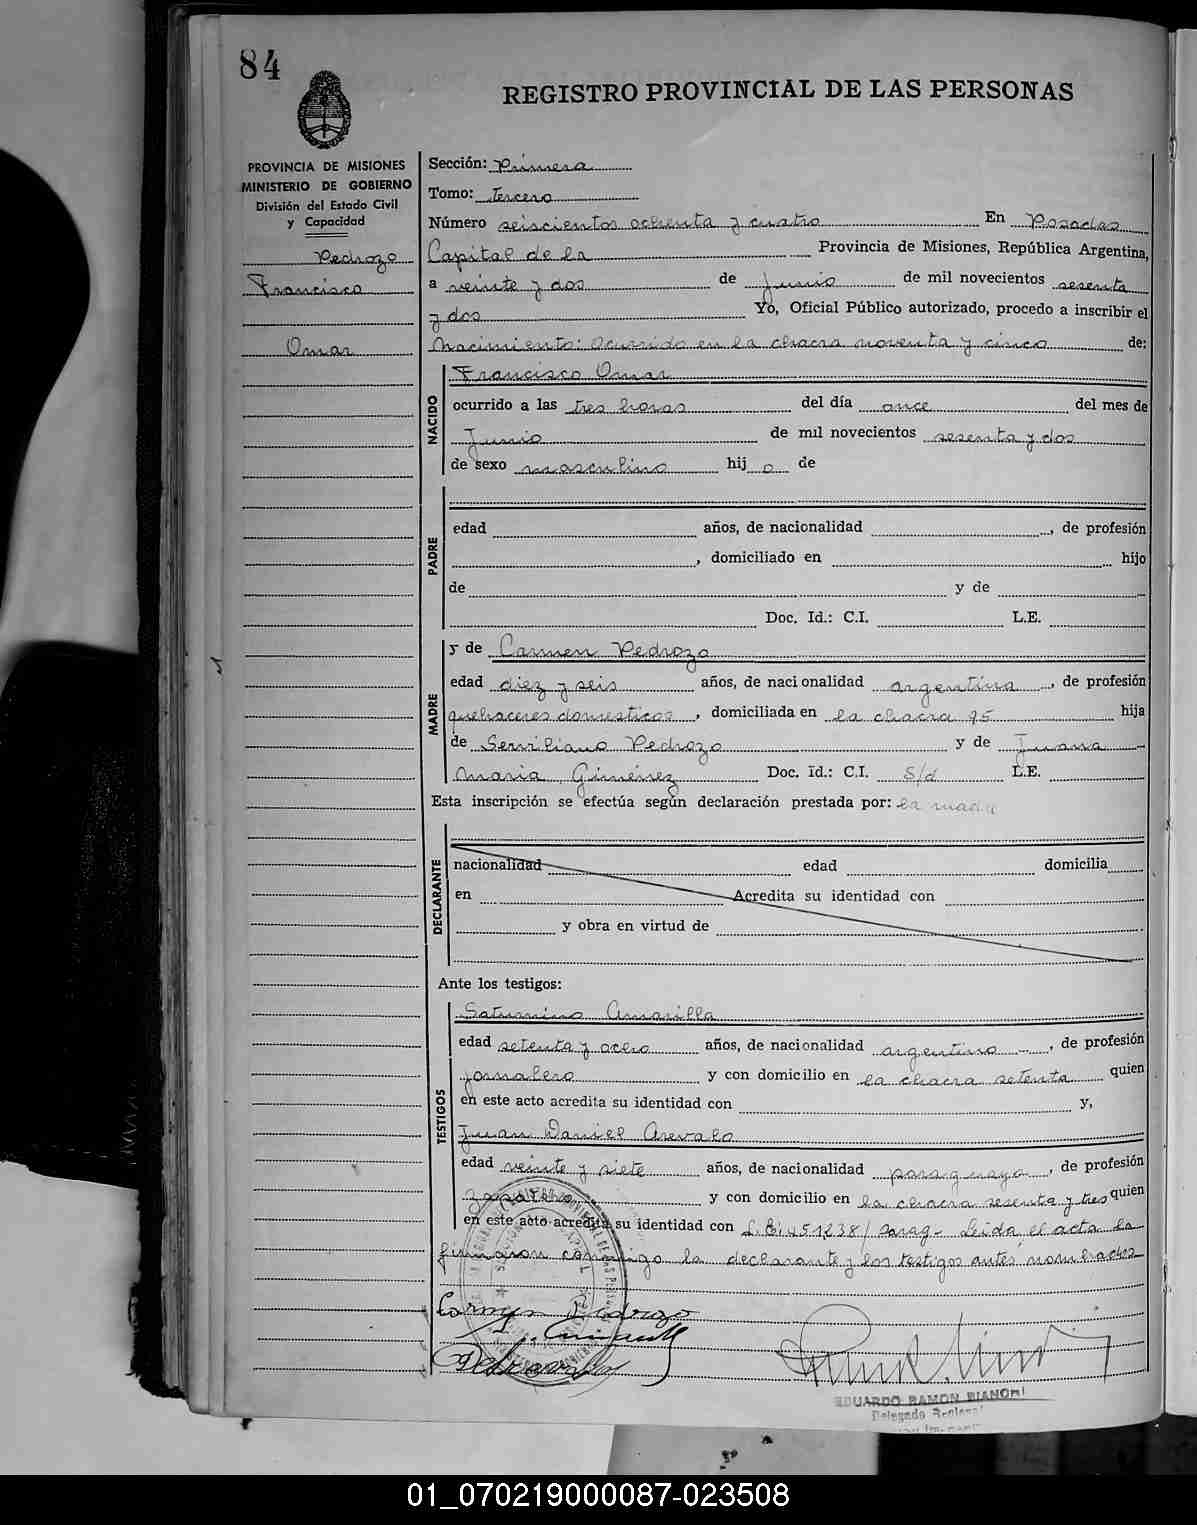 84
REGISTRO PROVINCIAL DE LAS PERSONAS
PROVINCIA DE MISIONES
MINISTERIO DE GOBIERNO
División del Estado Civil
y Capacidad
Pedrozo
Francisco
Omar
Sección: Primera
Tomo: Tercero
Número seiscientos ochenta y cuatro En Posadas
Capital de la Provincia de Misiones, República Argentina,
a veinte y dos de Junio de mil novecientos sesenta
y dos Yo, Oficial Público autorizado, procedo a inscribir el
Nacimiento: Ocurrido en la chacra noventa y cinco de:
NACIDO
Francisco Omar
ocurrido a las tres horas del día once del mes de
Junio de mil novecientos sesenta y dos
de sexo masculino hij o de
PADRE
edad años, de nacionalidad , de profesión
, domiciliado en hijo
de y de
Doc. Id.: C.I. L.E.
MADRE
y de Carmen Pedrozo
edad diez y seis años, de nacionalidad argentina, de profesión
quehaceres domesticos, domiciliada en la chacra 95 hija
de Serviliano Pedrozo y de Juana
Maria Giménez Doc. Id.: C.I. S/d L.E.
Esta inscripción se efectúa según declaración prestada por: la madre
DECLARANTE
nacionalidad edad domicilia
en Acredita su identidad con
y obra en virtud de
Ante los testigos:
TESTIGOS
Saturnino Amarilla
edad setenta y ocho años, de nacionalidad argentino, de profesión
jornalero y con domicilio en la chacra setenta quien
en este acto acredita su identidad con y,
Juan Daniel Arevalo
edad veinte y siete años, de nacionalidad paraguayo, de profesión
zapatero y con domicilio en la chacra sesenta y tres quien
en este acto acredita su identidad con Leida el acta la
firmaron conmigo la declarante y los testigos antes nombrados
Carmen Pedrozo
EDUARDO RAMON BIANCHI
Delegado Regional
01_070219000087-023508